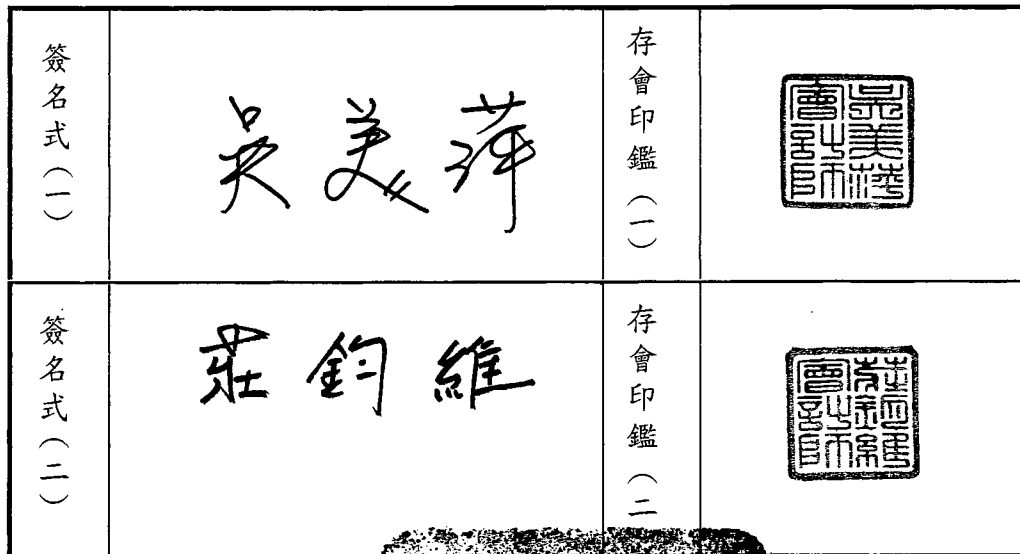 簽名式(一)
吳美萍
存會印鑑(一)
吳美萍會計師
簽名式(二)
莊鈞維
存會印鑑(二
莊鈞維會計師